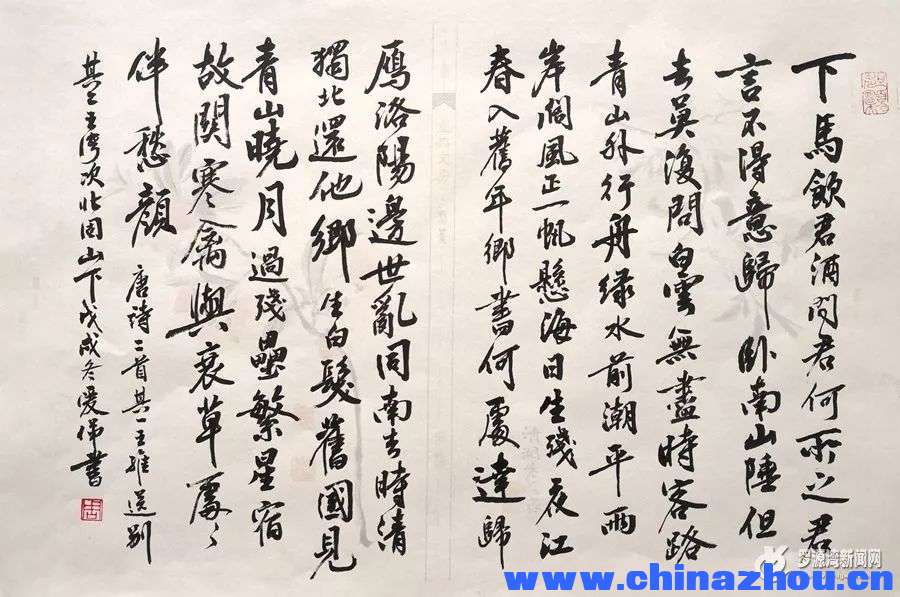 下馬飲君酒問君何所之君
言不得意歸卧南山陲但
去莫復問白雲無盡時客路
青山外行舟绿水前潮平兩
岸闊風正一帆懸海日生殘夜江
春入舊年鄉書何處達歸
雁洛陽邊世亂同南去時清
獨北還他鄉生白髮舊國見
青山曉月過殘壘繁星宿
故関寒禽與衰草處〻
伴愁顏 唐詩二首其一王維送别
其二王湾次北固山下戊戌冬爱悌書
罗源湾新闻网
www.chinazhou.cn